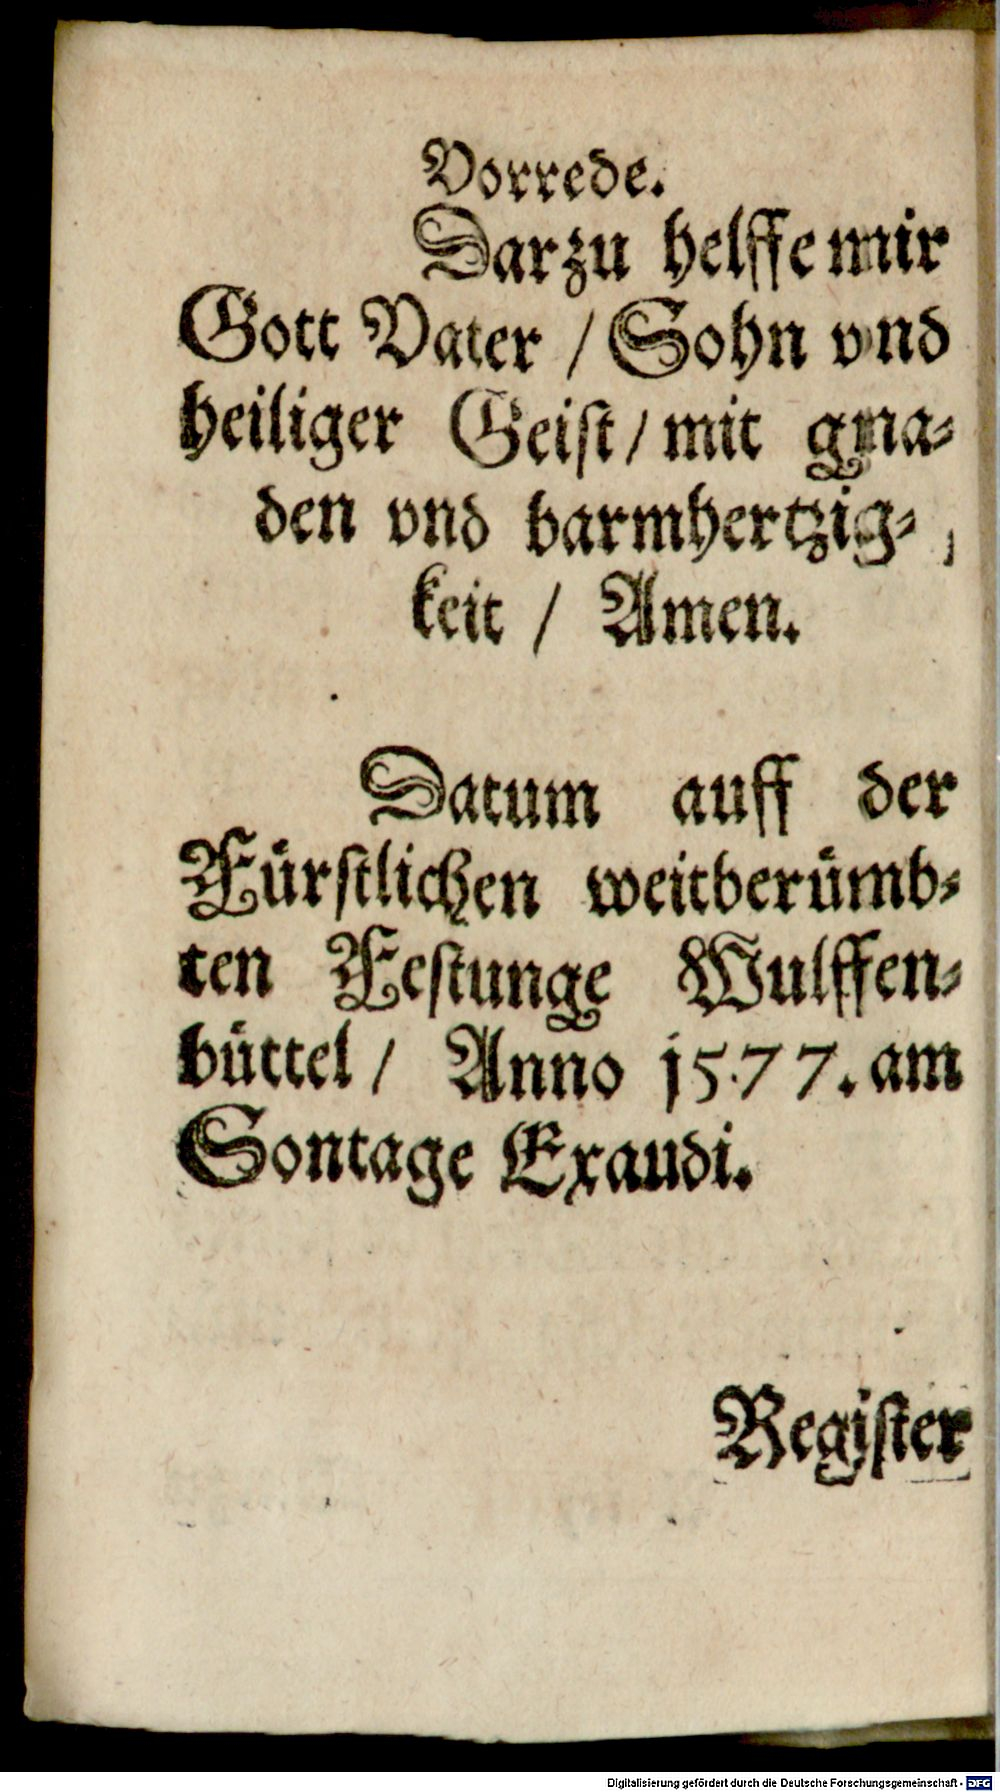 Vorrede.
Darzu helffe mir
Gott Vater / Sohn vnd
heiliger Geist / mit gna-
den vnd barmhertzig-
keit / Amen.
Datum auff der
Fürstlichen weitberümb-
ten Festunge Wulffen-
büttel / Anno 1577. am
Sontage Exaudi.
Register
Digitalisierung gefördert durch die Deutsche Forschungsgemeinschaft - DFG